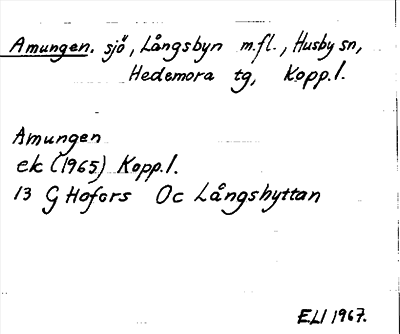 Amungen. sjö, Långsbyn m.fl., Husby sn,
Hedemora tg, Kopp.l.
Amungen
ek (1965) Kopp.l.
13 G Hofors Oc Långshyttan
ELI 1967.